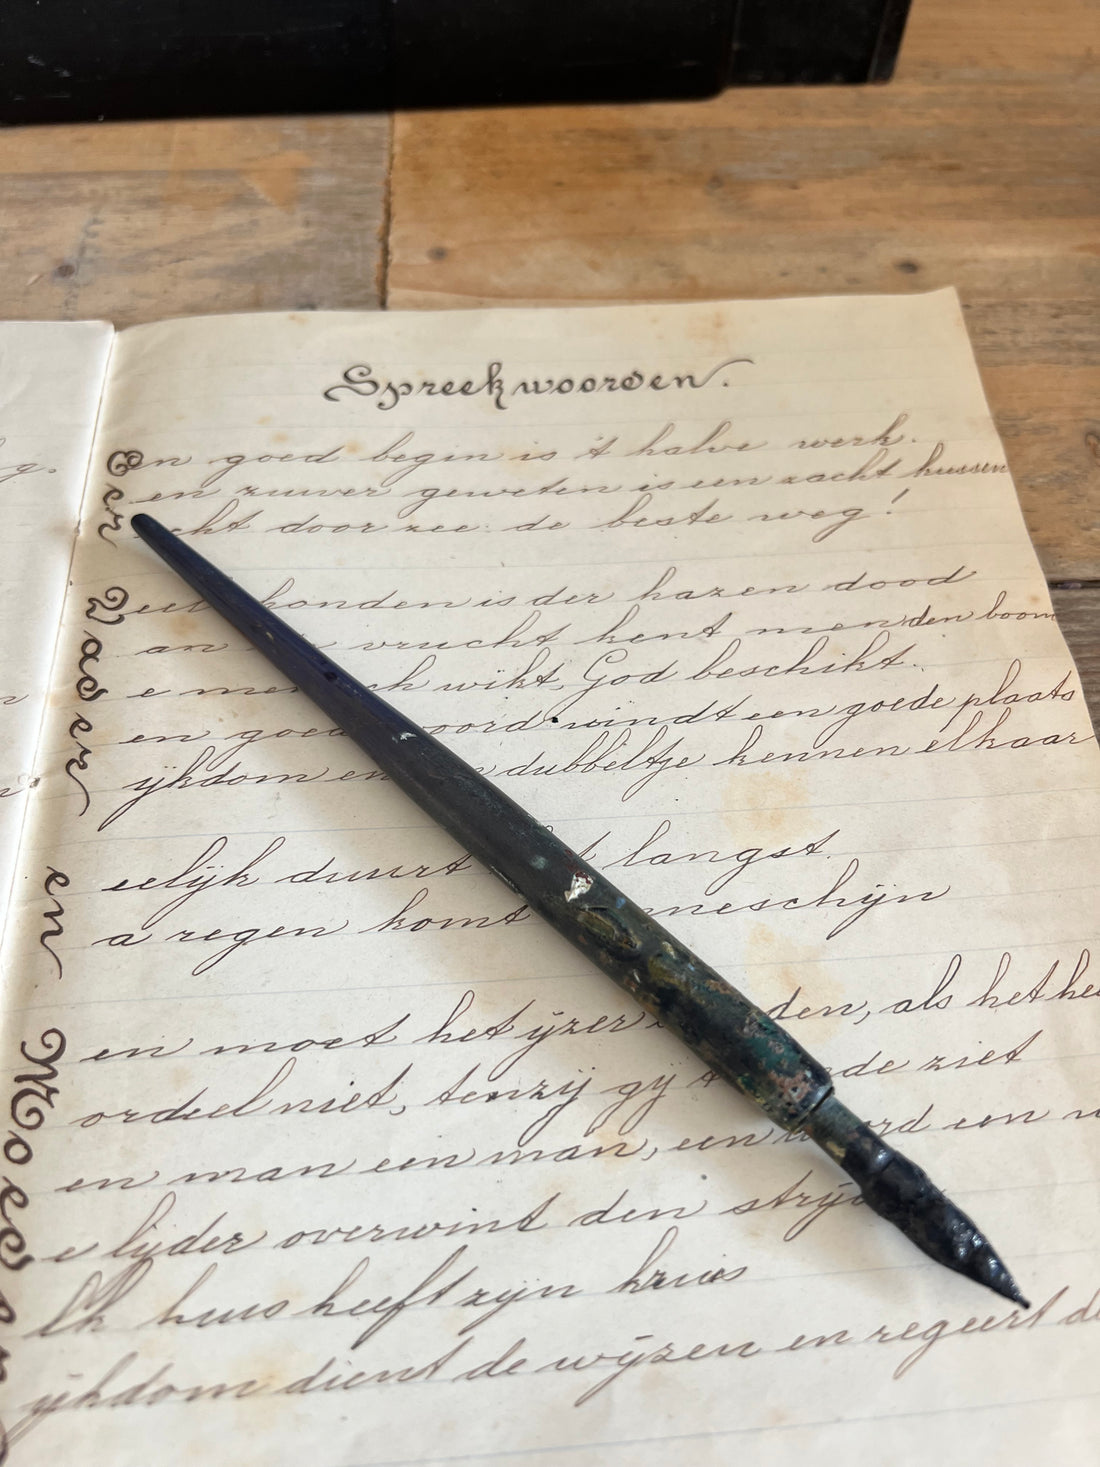 Spreekwoorden.
Een goed begin is 't halve werk.
en zuiver geweten is een zacht kussen
cht door zee: de beste weg!
Veel honden is der hazen dood
an vrucht kent men den boom
De men ch wikt, God beschikt.
en goed oord vindt een goede plaats
Rijkdom en dubbeltje kennen elkaar
Eerlijk duurt langst.
Na regen komt nneschijn
Men moet het ijzer den, als het hee
Oordeel niet, tenzij gij t ede ziet
en man een man, een w rd een w
De lijder overwint den strijd
Elk huis heeft zijn kruis
Rijkdom dient de wijzen en regeert de